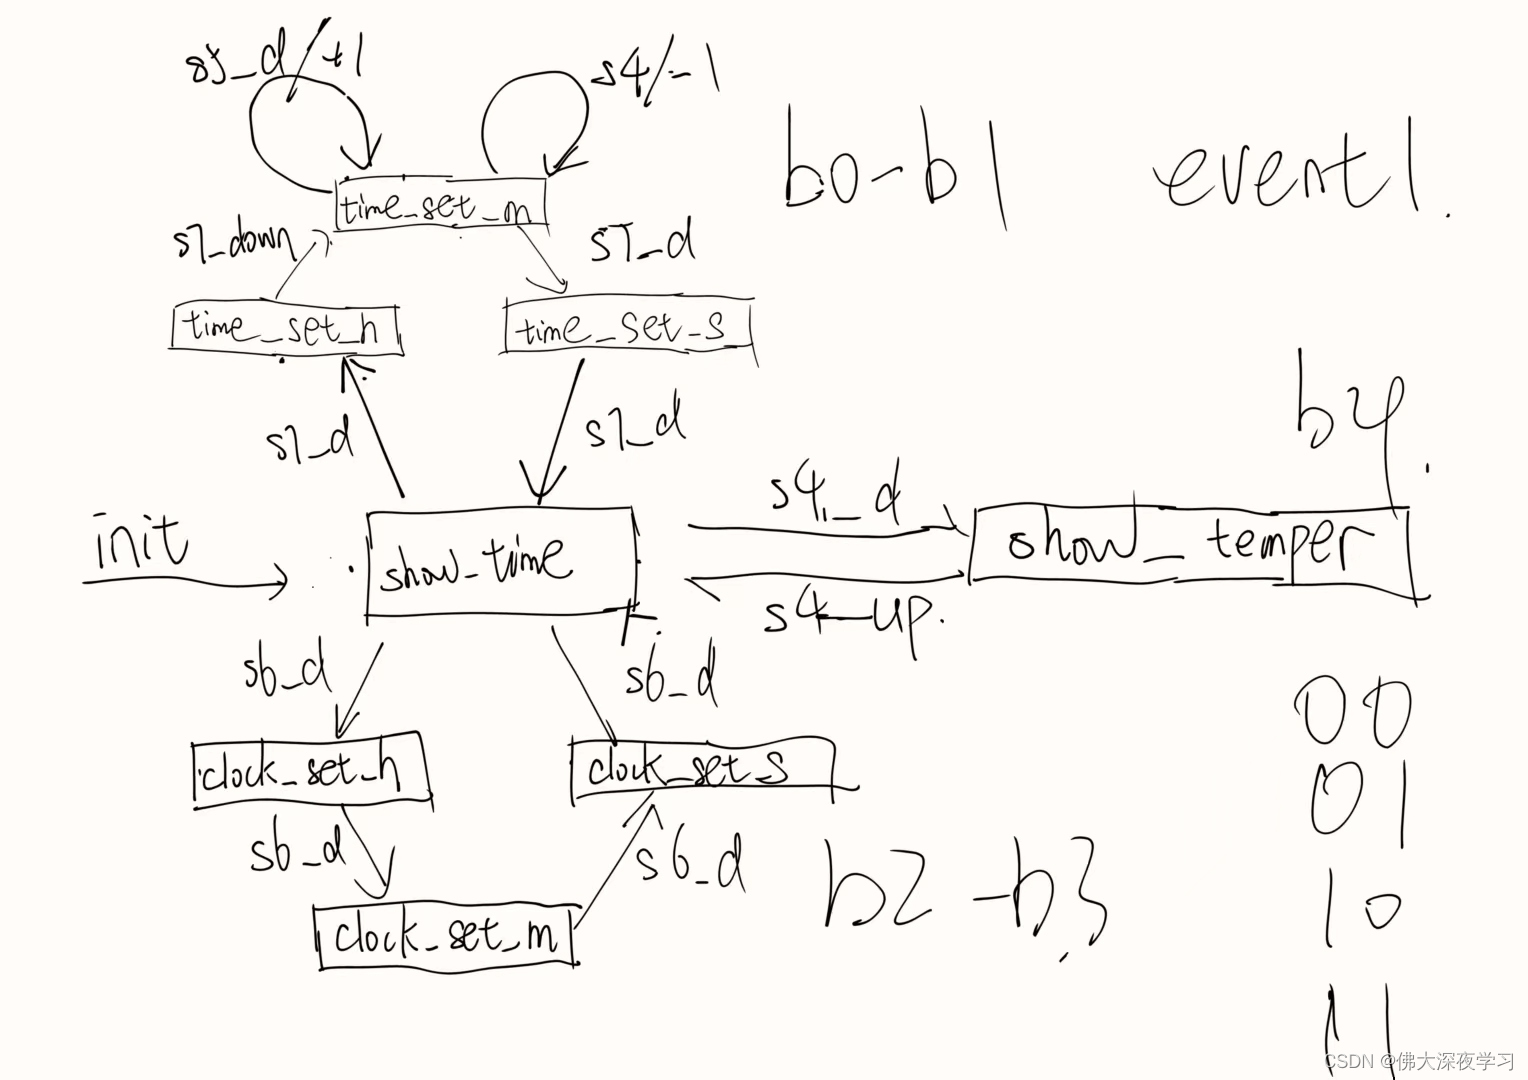 s5_d/+1
s4/-1
b0-b1
event1.
time_set_m
s7_down
s7_d
time_set_h
time_set_s
b4.
s7_d
s7_d
s4_d
init
show_time
show_temper
s4_up.
s6_d
s6_d
00
clock_set_h
clock_set_s
01
s6_d
s6_d
b2-b3
10
clock_set_m
11
CSDN @佛大深夜学习